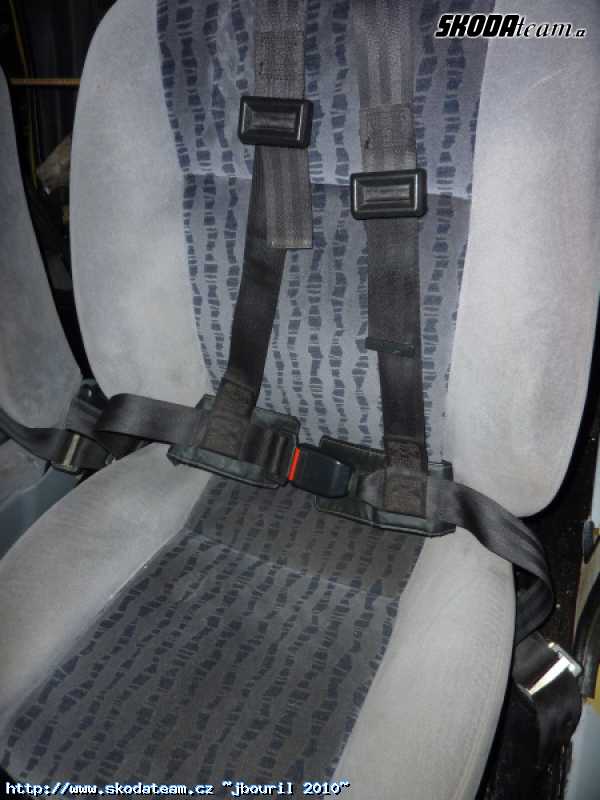 SKODAteam.cz
http://www.skodateam.cz ~jbouril 2010~